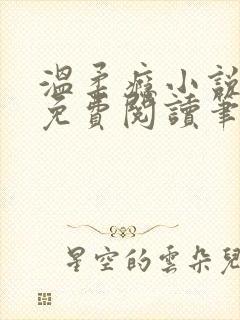 溫柔癮小說
免費閱讀筆
星空的雲朵兒